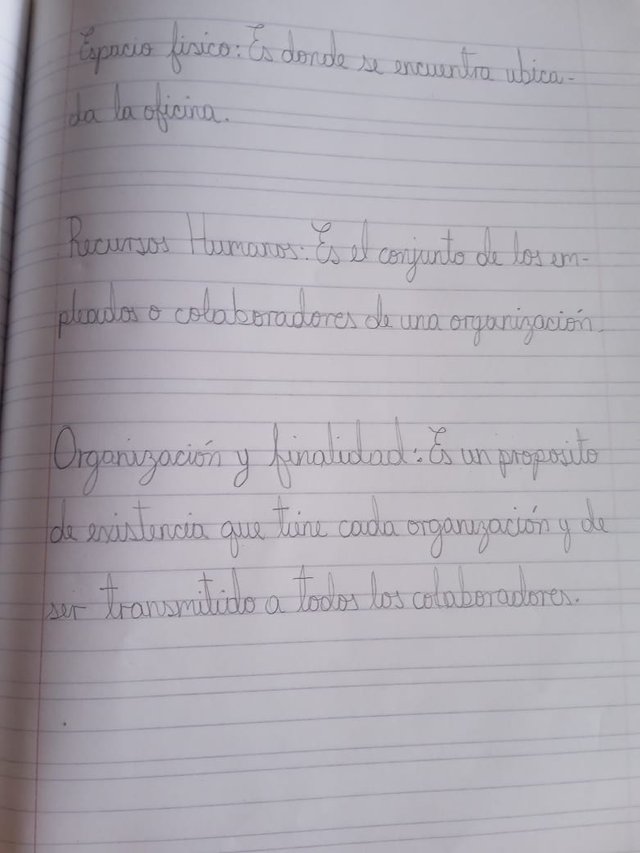 Espacio fisico: Es donde se encuentra ubica-
da la oficina.
Recursos Humanos: Es el conjunto de los em-
pleados o colaboradores de una organización.
Organización y finalidad: Es un proposito
de existencia que tiene cada organización y de
ser transmitido a todos los colaboradores.